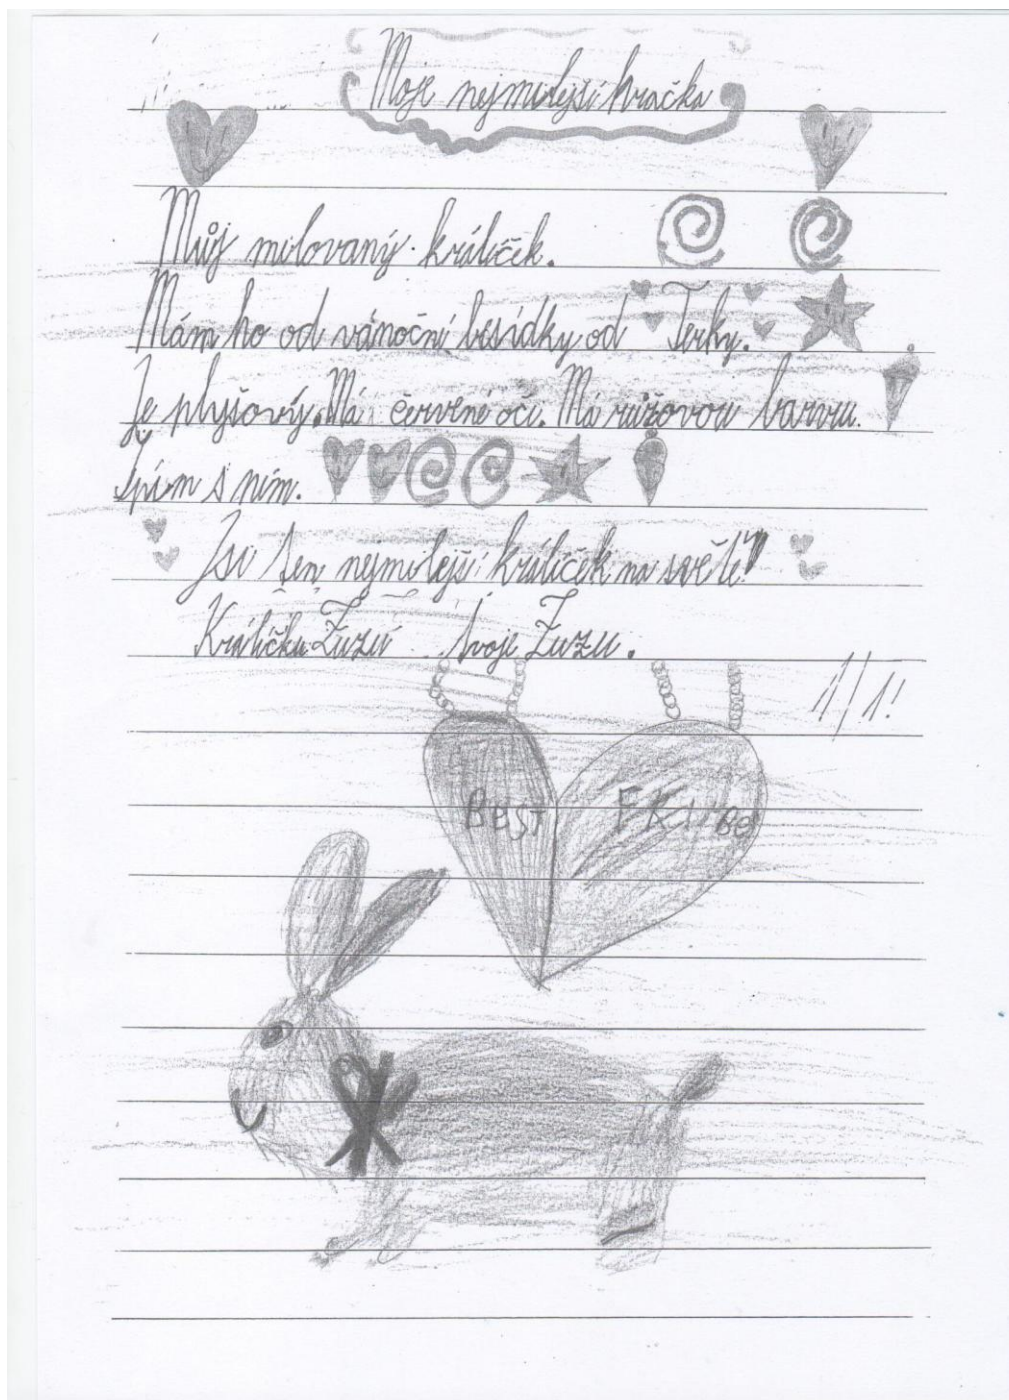 Moje nejmilejší hračka
Můj milovaný králíček.
Mám ho od vánoční besídky od Terky.
Je plyšový. Má červené oči. Má růžovou barvu.
Spím s ním.
Jsi ten nejmilejší králíček na světě!
Králíčku Zuzú tvoje Zuzu.
1/1!
BEST FRI